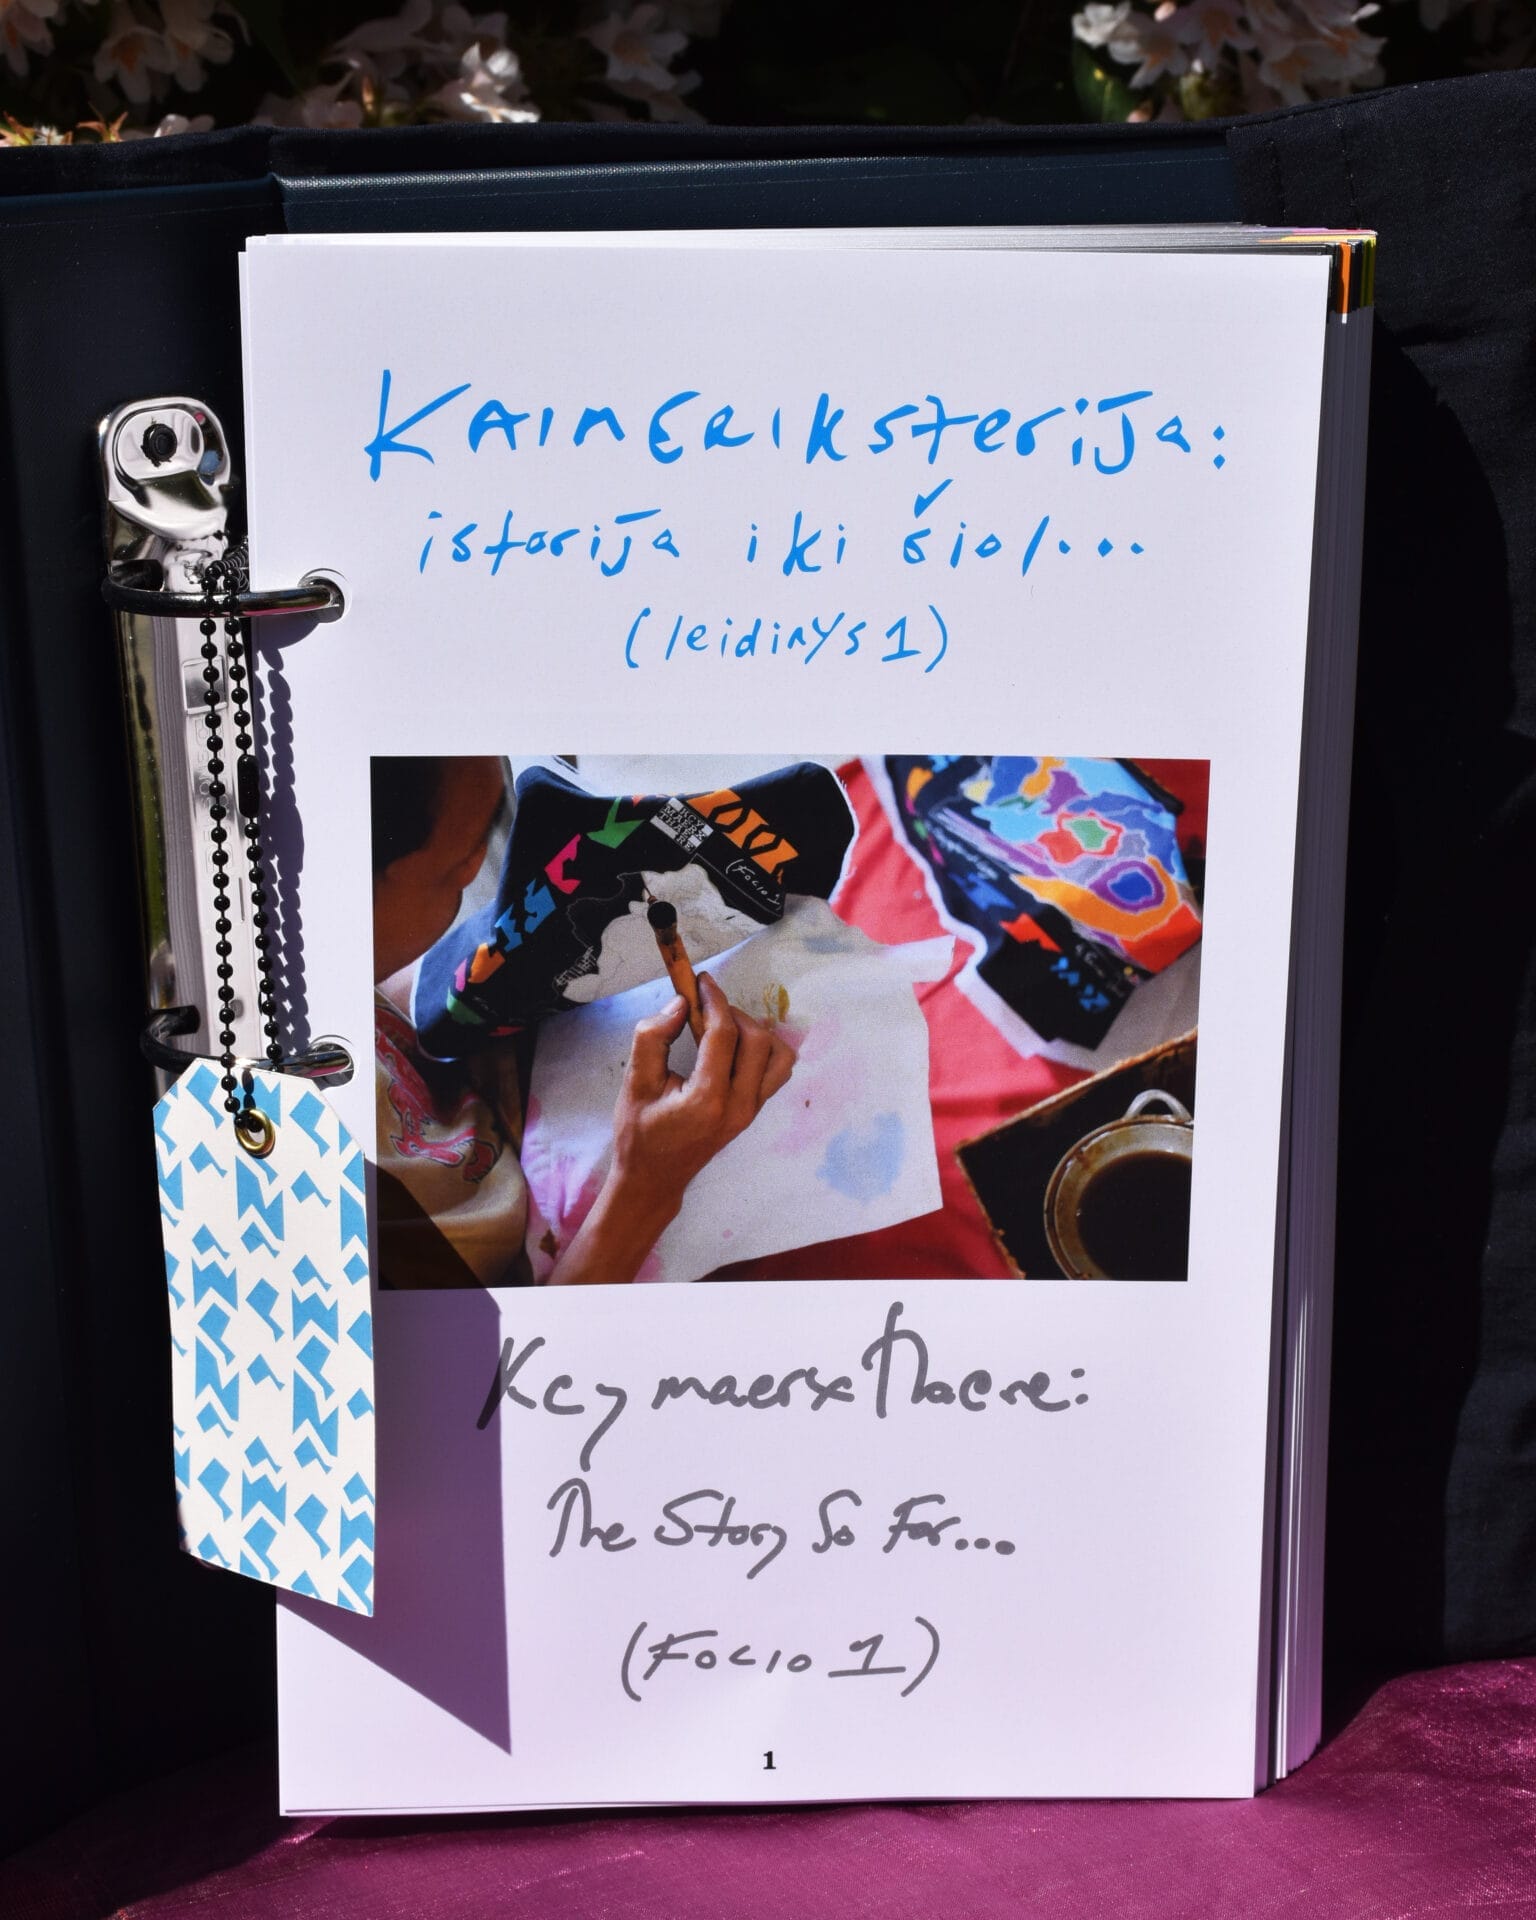 Kaimeriksterija:
istorija iki šiol...
(leidinys 1)
KCY
MAER
XTHA
ERE
(Folio 1)
Kcymaerxthaere:
The Story So Far...
(Folio 1)
1